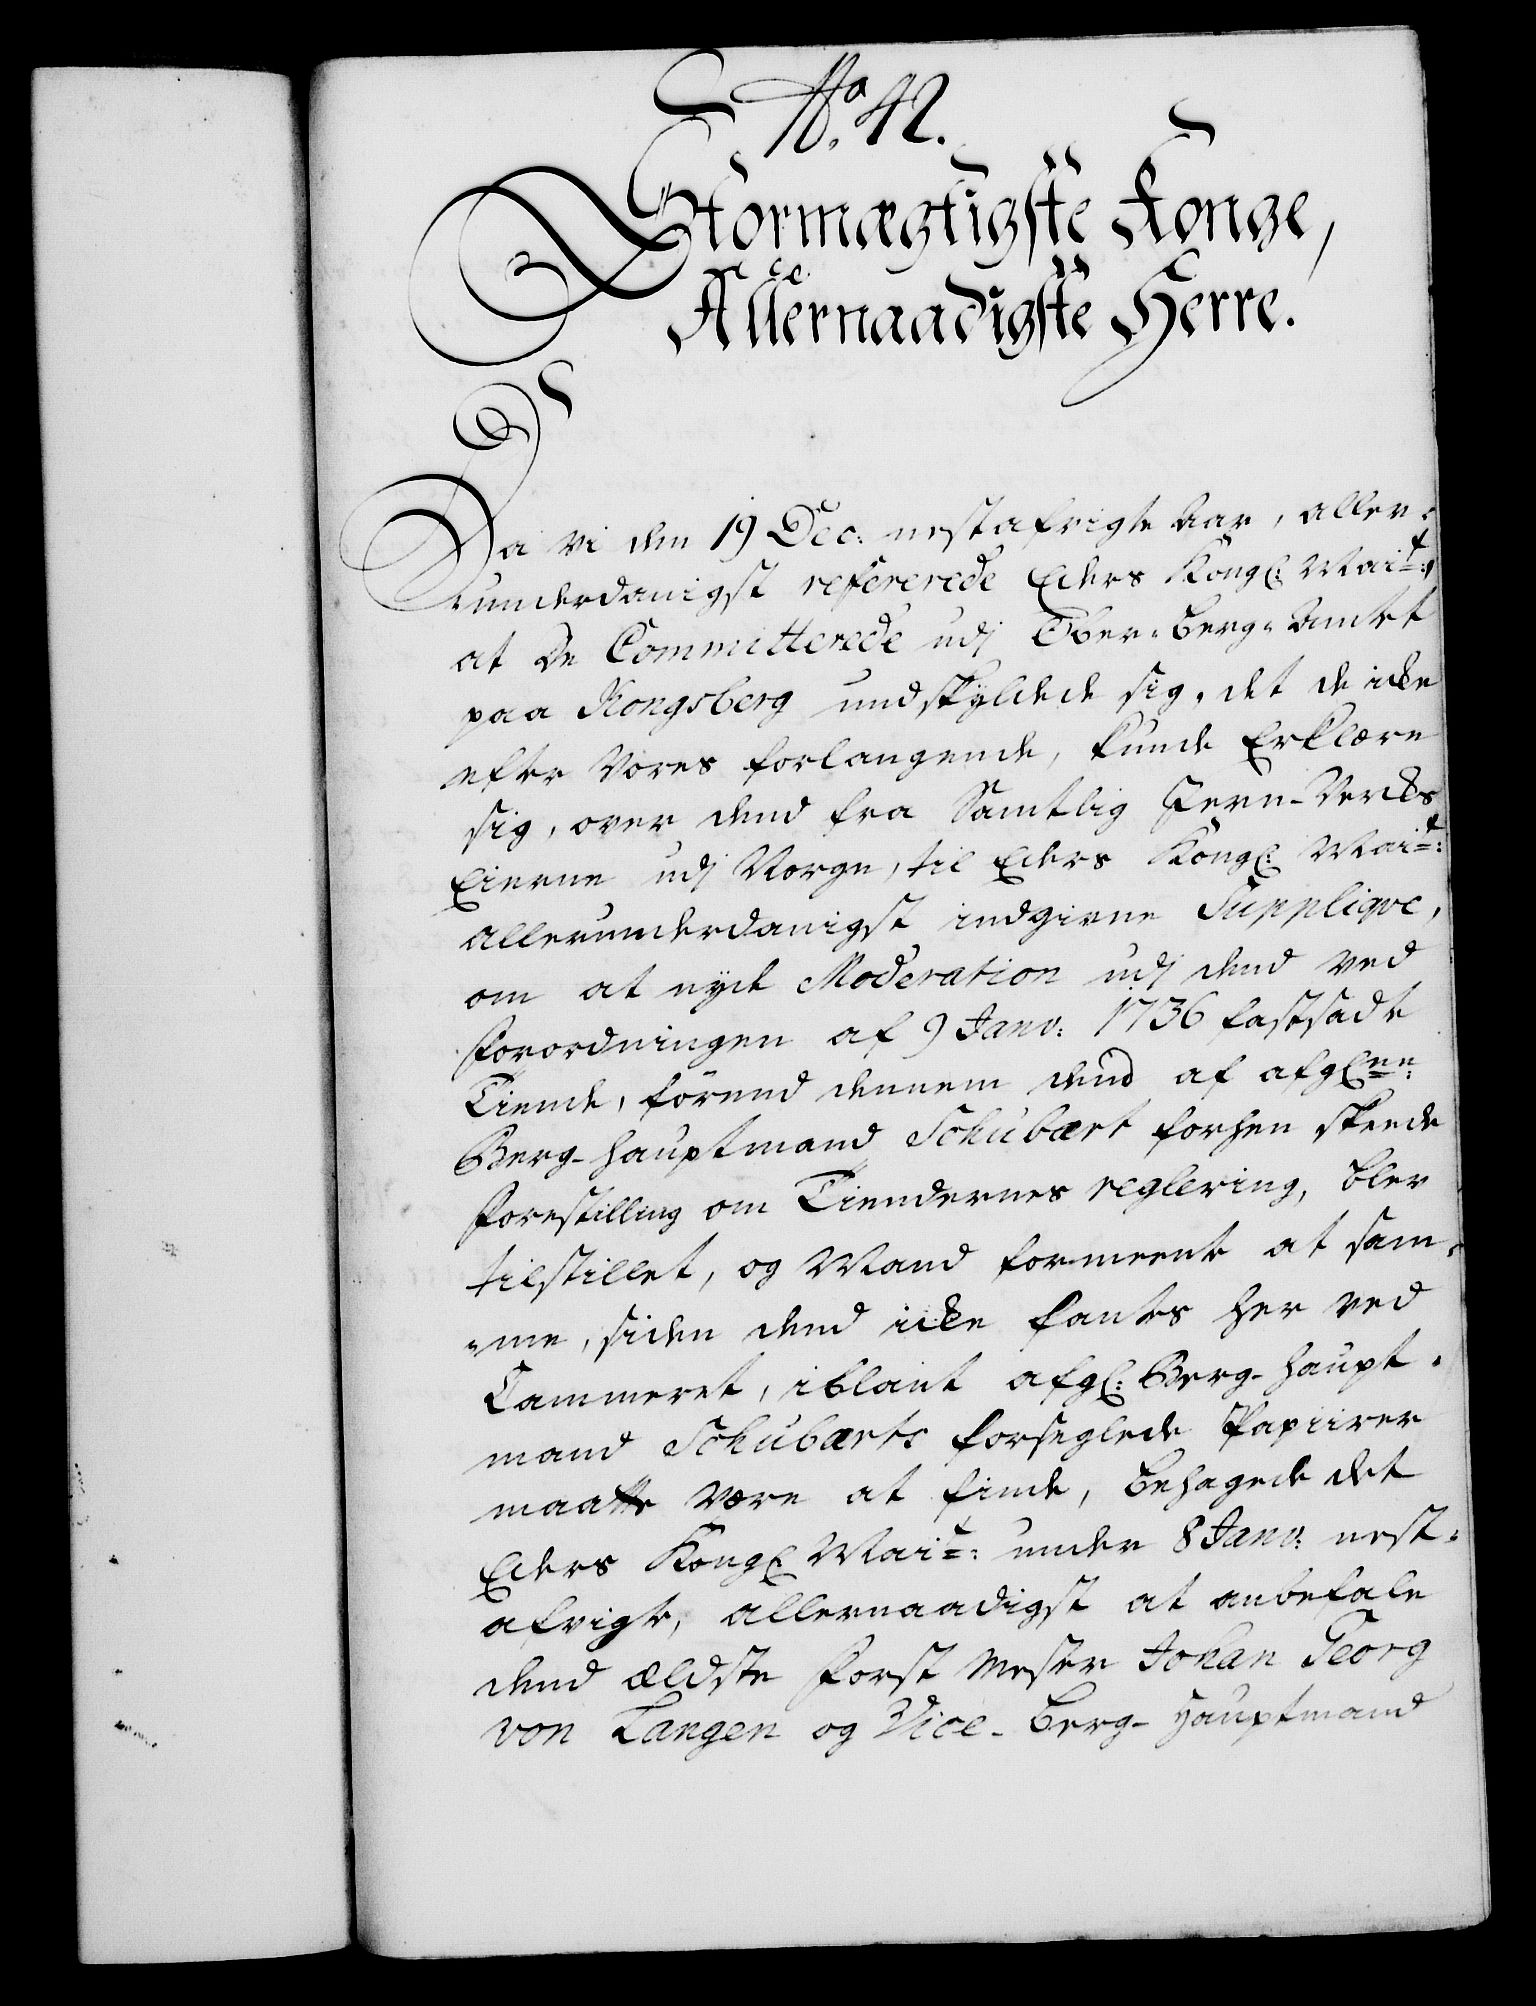 No. 42.
Stormægtigste Konge,
Allernaadigste Herre.
Da vi den 19 Dec: nestafvigte Aar, aller-
underdanigst refererede Eders Kongl: Mait:,
at De Committerede udj Ober-Berg-Amtet
paa Kongsberg undskyldede sig, det de icke
efter Vores forlangende, kunde Erklære
sig, over dend fra Samtlig Jern-Vercks
Eierne udj Norge, til Eders Kongl: Mait:
allerunderdanigst indgivne Supplique,
om at nyde Moderation udj dend ved
Forordningen af 9 Janv: 1736 fastsadte
Tiende, förend dennem dend af afgl:ne
Berg-Hauptmand Schubært forhen skeede
Forestilling om Tiendernes reglering, blev
tilstillet, og Mand formeente at sam-
-me, siden dend icke fantes her ved
Cammeret, iblant afgl: Berg-Haupt-
mand Schubærts forseglede Papiirer
maatte være at finde, behagede det
Eders Kongl: Mait: under 8 Janv: nest-
afvigt, allernaadigst at anbefale
dend ældste Forst Mester Johan Georg
von Langen og Vice-Berg-Hauptmand